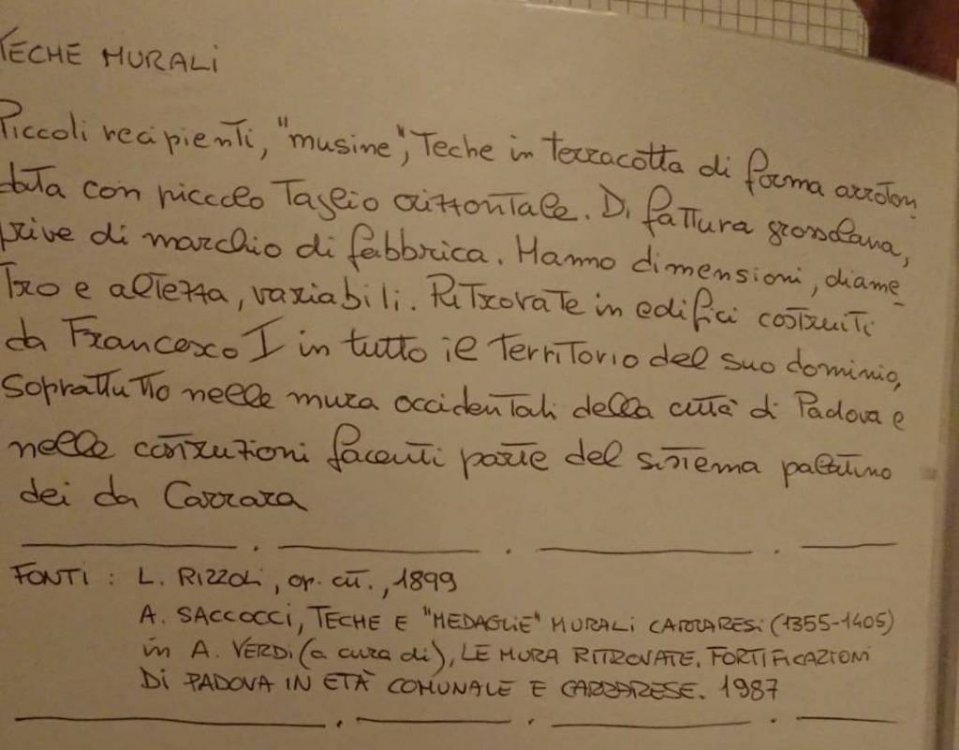 TECHE MURALI
Piccoli recipienti, "musine", Teche in terracotta di forma arroton
data con piccolo Taglio orizzontale. Di fattura grossolana,
prive di marchio di fabbrica. Hanno dimensioni, diame_
tro e altezza, variabili. Ritrovate in edifici costruiti
da Francesco I in tutto il Territorio del suo dominio,
soprattutto nelle mura occidentali della città di Padova e
nelle costruzioni facenti parte del sistema palatino
dei da Carrara
FONTI : L. RIZZOLI, op. cit., 1899
A. SACCOCCI, TECHE E "MEDAGLIE" MURALI CARRARESI (1355-1405)
in A. VERDI (a cura di), LE MURA RITROVATE. FORTIFICAZIONI
DI PADOVA IN ETÀ COMUNALE E CARRARESE. 1987